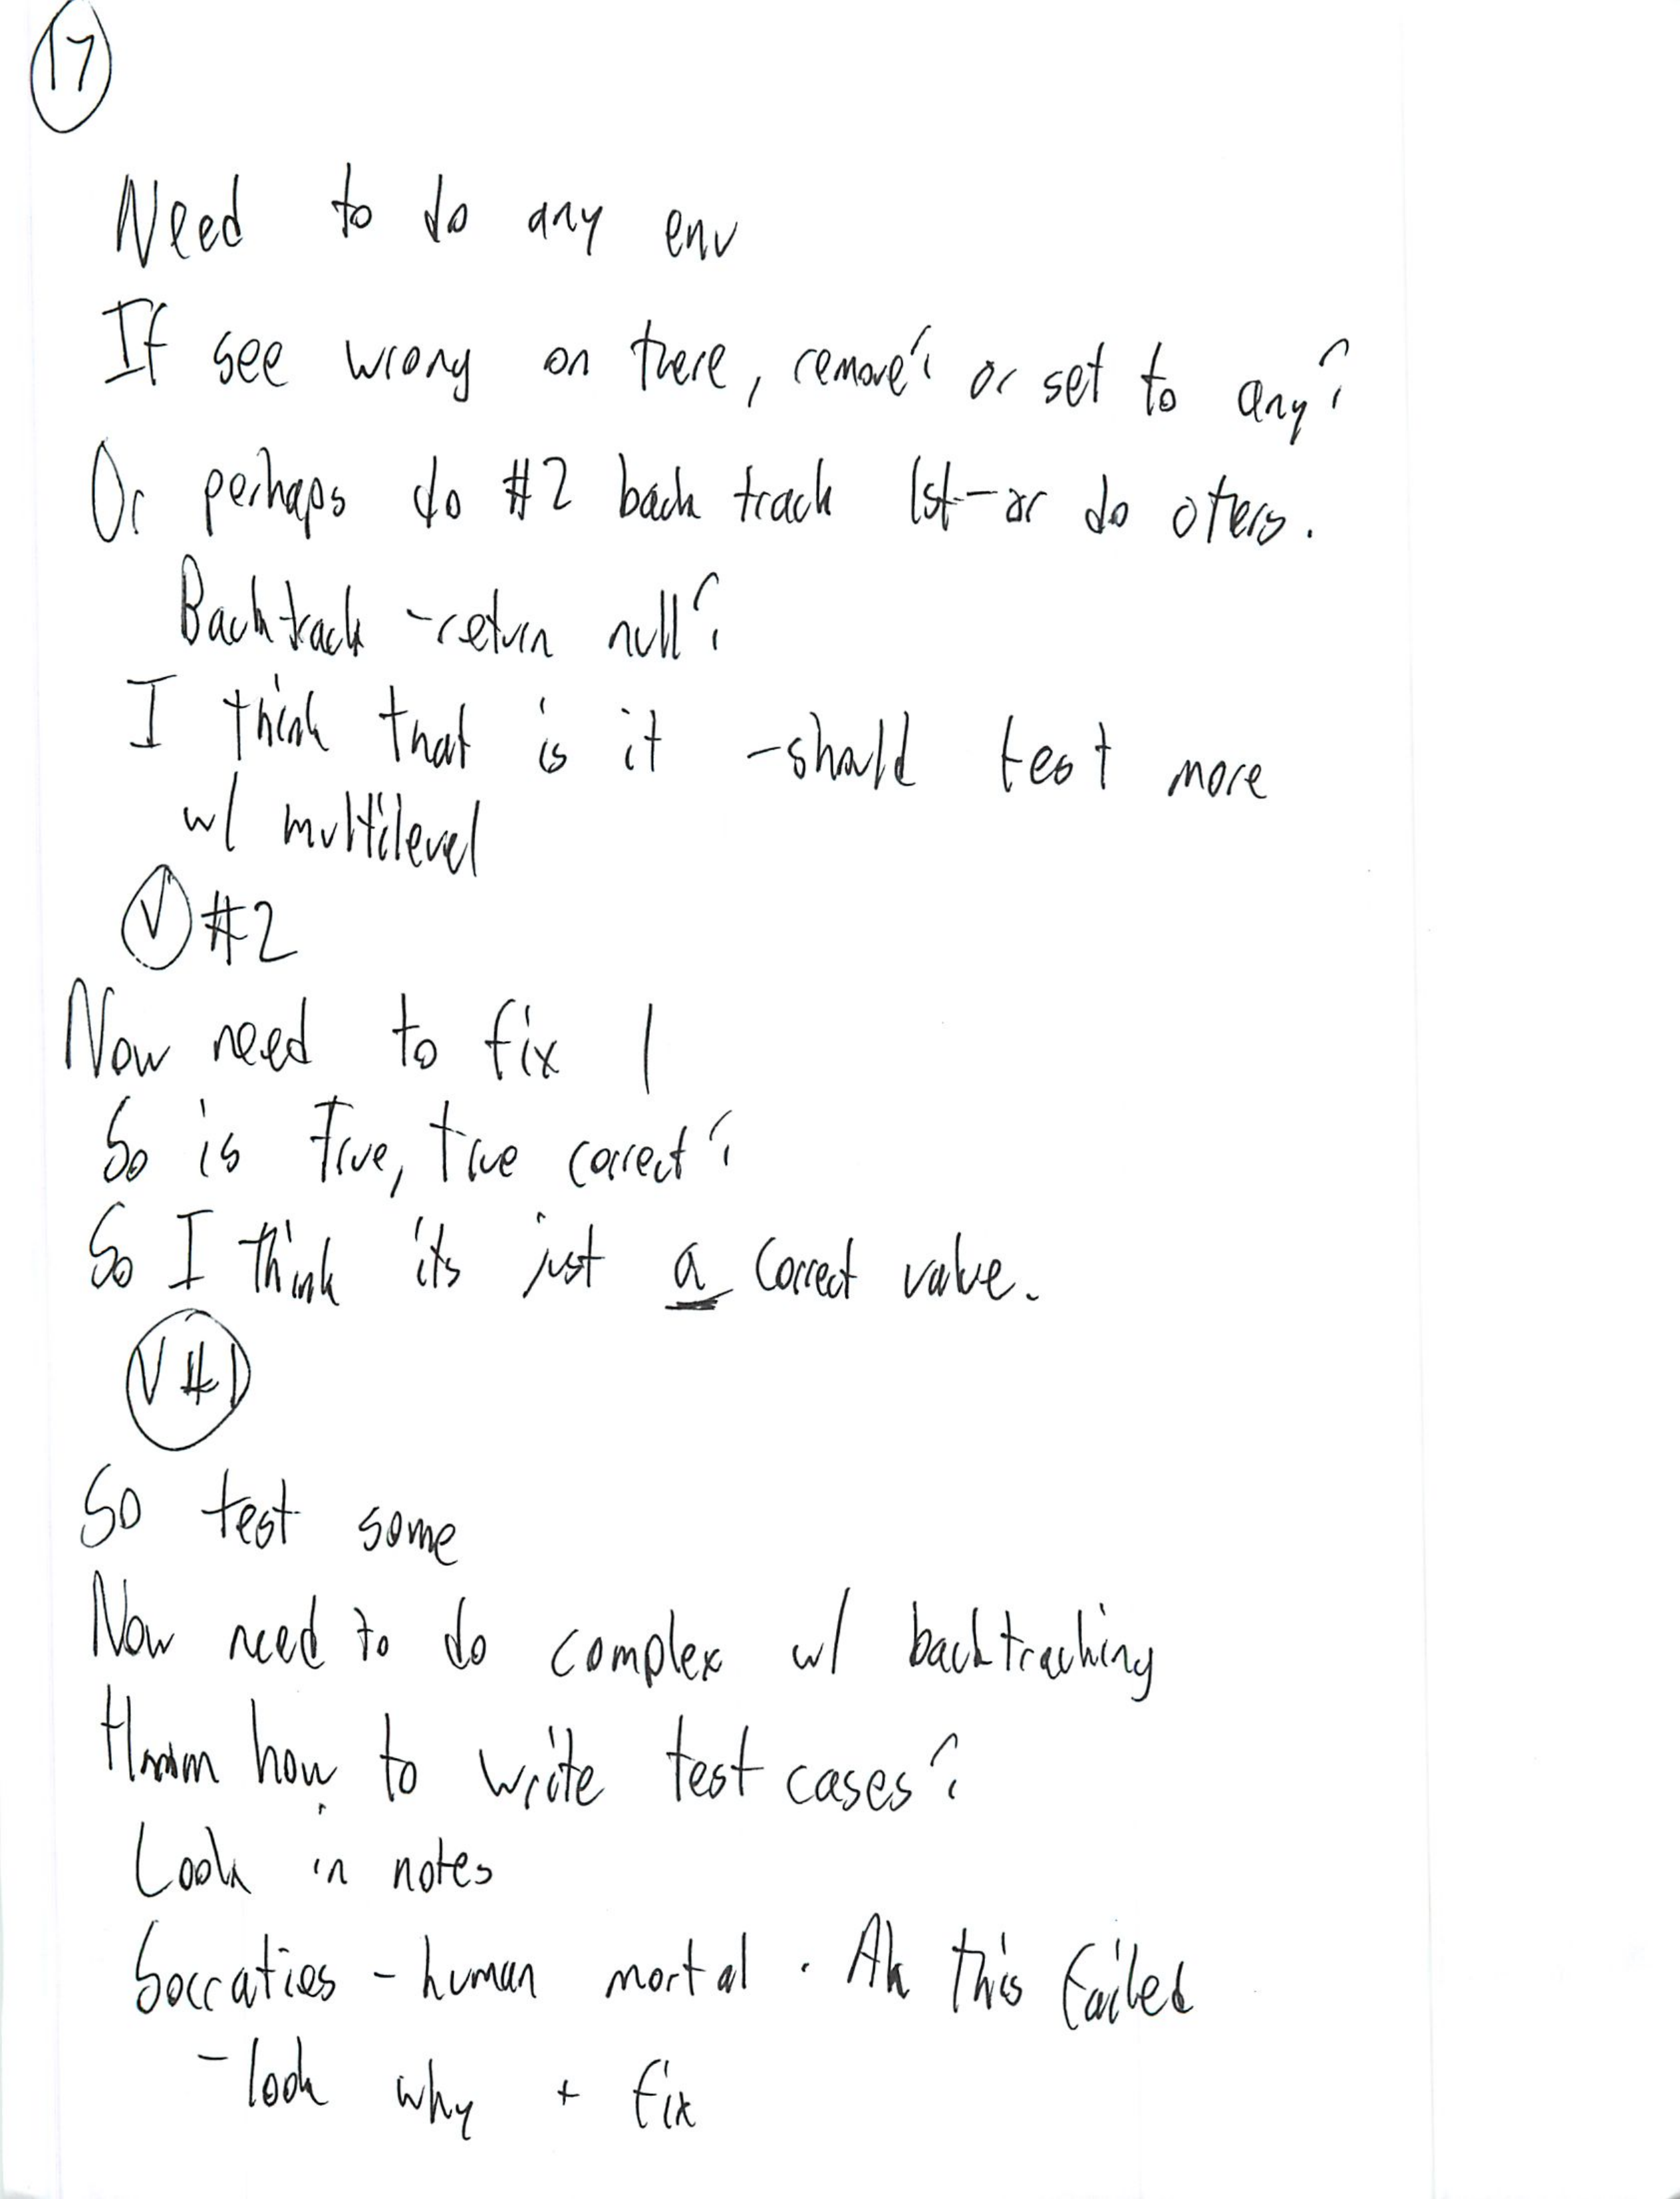 17
Need to do any env
If see wrong on there, remove? or set to any?
Or perhaps do #2 back track 1st - or do others.
Backtrack - return null?
I think that is it - should test more
w/ multilevel
✓ #2
Now need to fix 1
So is true, true correct?
So I think its just a correct value.
✓ #1
So test some
Now need to do complex w/ backtracking
Hmmm how to write test cases?
Look in notes
Socraties - human mortal. Ah this failed
- look why + fix